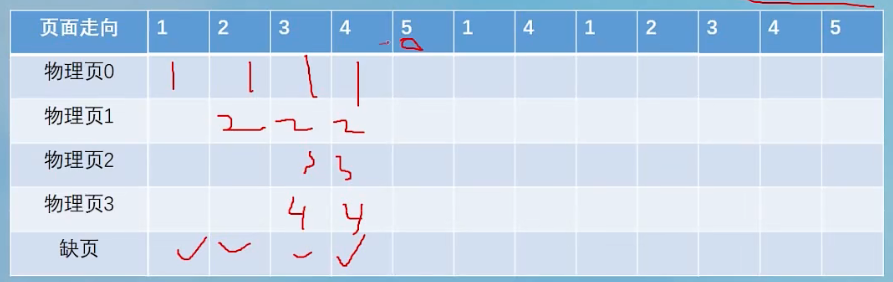 页面走向 1 2 3 4 5 1 4 1 2 3 4 5
物理页0 1 1 1 1
物理页1 2 2 2
物理页2 3 3
物理页3 4 4
缺页 ✓ ✓ ✓ ✓